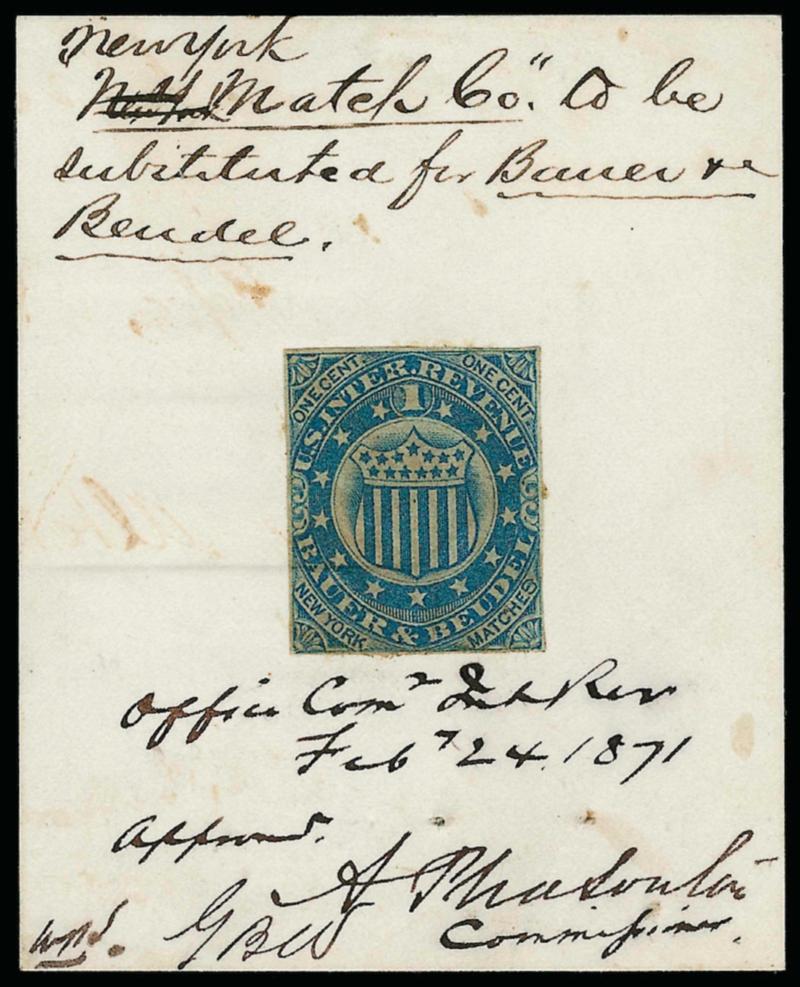 New York
Match Co". to be
substituted for Bauer &
Beudel.
ONE CENT. ONE CENT.
U.S. INTER. REVENUE
1
BAUER & BEUDEL
NEW YORK MATCHES
Office Comr Int Rev
Feby 24. 1871
Approved.
A Pleasonton
Commissioner.
GBW